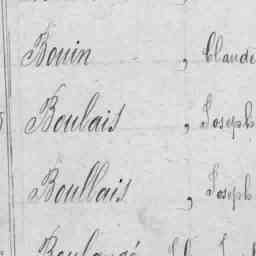 Bouin , Claude
Boulais , Joseph
Boullais , Joseph
Boulangé